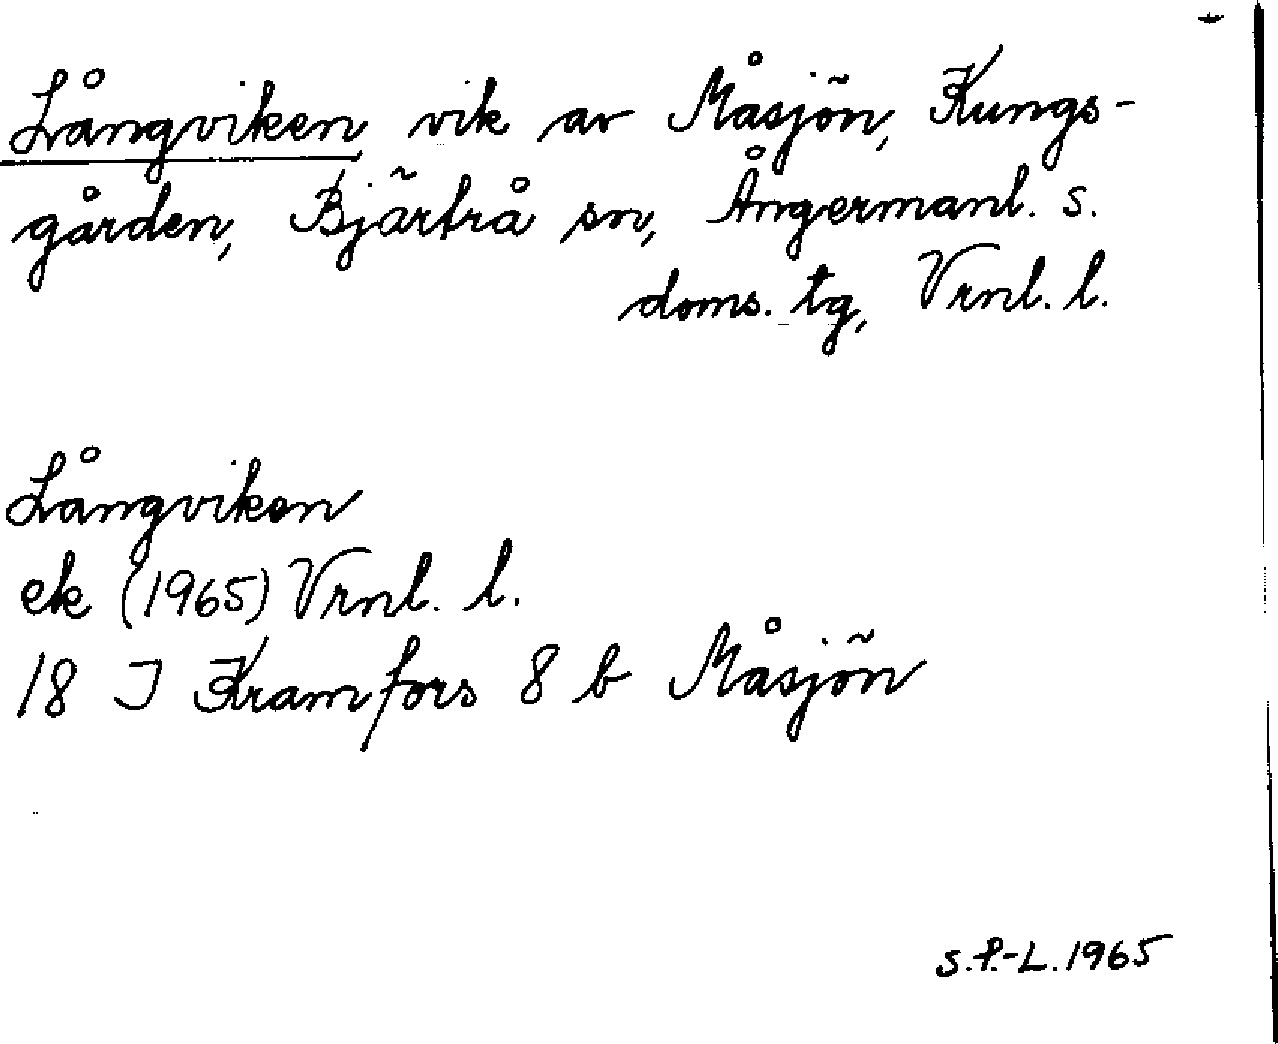 Långviken vik av Måsjön, Kungs-
gården, Bjärtrå sn, Ångermanl. s.
doms. tg, Vrnl. l.
Långviken
ek (1965) Vrnl. l.
18 J Kramfors 8 b Måsjön
S.P.-L. 1965